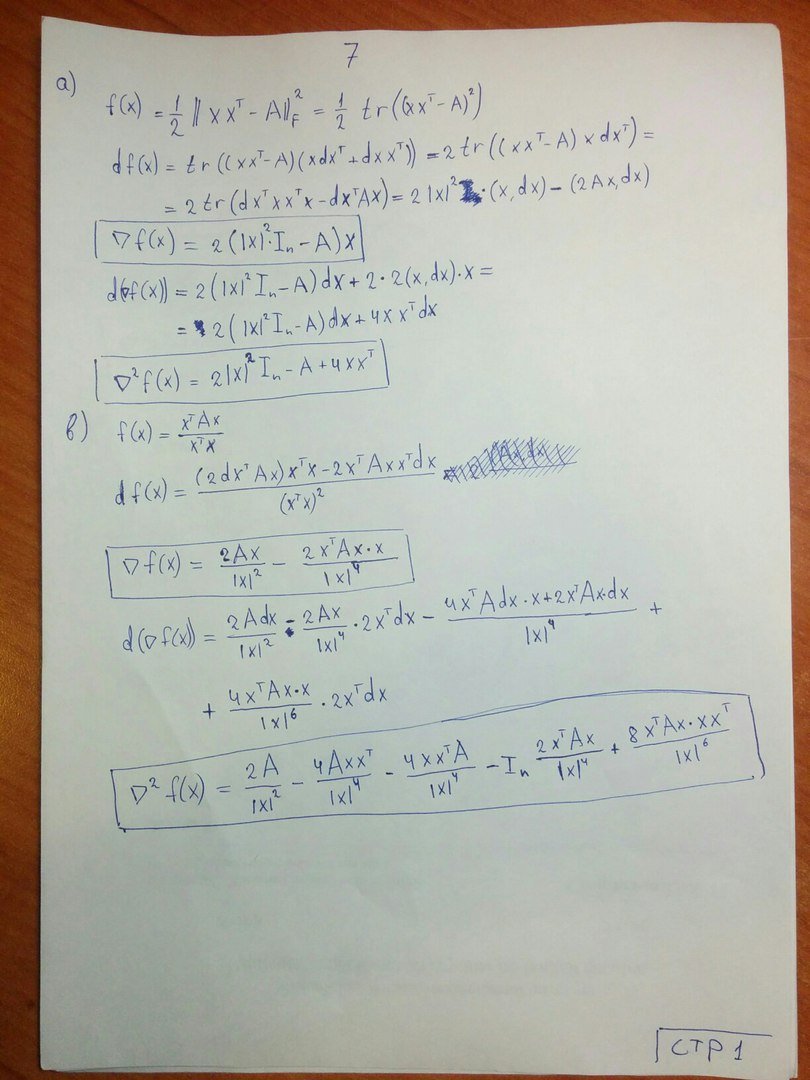 7
а) f(x) = 1/2 ‖xxᵀ - A‖²_F = 1/2 tr((xxᵀ-A)²)
df(x) = tr((xxᵀ-A)(xdxᵀ+dxxᵀ)) = 2tr((xxᵀ-A)xdxᵀ) =
= 2tr(dxᵀxxᵀx-dxᵀAx) = 2|x|²·(x,dx)-(2Ax,dx)
∇f(x) = 2(|x|²·Iₙ-A)x
d(∇f(x)) = 2(|x|²Iₙ-A)dx+2·2(x,dx)·x =
= 2(|x|²Iₙ-A)dx+4xxᵀdx
∇²f(x) = 2|x|²Iₙ-A+4xxᵀ
в) f(x) = xᵀAx/xᵀx
df(x) = ((2dxᵀAx)xᵀx-2xᵀAxxᵀdx)/(xᵀx)²
∇f(x) = 2Ax/|x|² - 2xᵀAx·x/|x|⁴
d(∇f(x)) = 2Adx/|x|² - 2Ax/|x|⁴ · 2xᵀdx - (4xᵀAdx·x+2xᵀAx·dx)/|x|⁴ +
+ 4xᵀAx·x/|x|⁶ · 2xᵀdx
∇²f(x) = 2A/|x|² - 4Axxᵀ/|x|⁴ - 4xxᵀA/|x|⁴ - Iₙ 2xᵀAx/|x|⁴ + 8xᵀAx·xxᵀ/|x|⁶
СТР 1